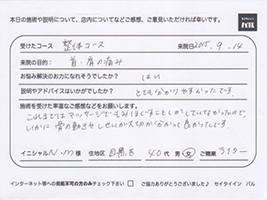 本日の施術や説明について、店内についてなどご感想、ご意見いただければ幸いです。
受けたコース 整体コース 来院日 2015. 9. 14
来院の目的: 首・肩の痛み
お悩み解決のお力になれそうでしたか? はい
説明やアドバイスはいかがでしたか? とても分かりやすかったです。
施術を受けた率直なご感想などをお願いします。
これまではマッサージでもみほぐすことしかしていなかったので、
しっかりと骨の動きや
良かったです。
イニシャル N.M 様 住地区 目黒区 40代 男・女 ご職業
インターネット等への掲載不可の方のみチェック下さい □ ご協力ありがとうございました♪ セイタイイン バル